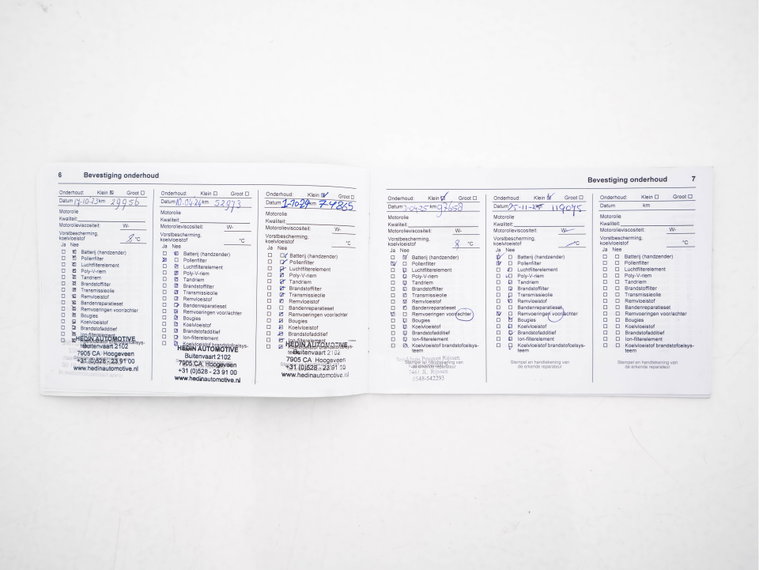 6 Bevestiging onderhoud
Onderhoud: Klein Groot
Datum 17-10-23 km 29956
Motorolie
Kwaliteit:
Motorolieviscositeit: W-
Vorstbescherming,
koelvloeistof 8 °C
Ja Nee
Batterij (handzender)
Pollenfilter
Luchtfilterelement
Poly-V-riem
Tandriem
Brandstoffilter
Transmissieolie
Remvloeistof
Bandenreparatieset
Remvoeringen voor/achter
Bougies
Koelvloeistof
Brandstofadditief
Ion-filterelement
HEDIN AUTOMOTIVE
Buitenvaart 2102
7905 CA Hoogeveen
+31 (0)528 - 23 91 00
www.hedinautomotive.nl
Onderhoud: Klein Groot
Datum 10.04.24 km 52973
Motorolie
Kwaliteit:
Motorolieviscositeit: W-
Vorstbescherming,
koelvloeistof °C
Ja Nee
Batterij (handzender)
Pollenfilter
Luchtfilterelement
Poly-V-riem
Tandriem
Brandstoffilter
Transmissieolie
Remvloeistof
Bandenreparatieset
Remvoeringen voor/achter
Bougies
Koelvloeistof
Brandstofadditief
Ion-filterelement
HEDIN AUTOMOTIVE
Buitenvaart 2102
7905 CA Hoogeveen
+31 (0)528 - 23 91 00
www.hedinautomotive.nl
Onderhoud: Klein Groot
Datum km 74865
Motorolie
Kwaliteit:
Motorolieviscositeit: W-
Vorstbescherming,
koelvloeistof °C
Ja Nee
Batterij (handzender)
Pollenfilter
Luchtfilterelement
Poly-V-riem
Tandriem
Brandstoffilter
Transmissieolie
Remvloeistof
Bandenreparatieset
Remvoeringen voor/achter
Bougies
Koelvloeistof
Brandstofadditief
Ion-filterelement
HEDIN AUTOMOTIVE
Buitenvaart 2102
7905 CA Hoogeveen
+31 (0)528 - 23 91 00
www.hedinautomotive.nl
Bevestiging onderhoud 7
Onderhoud: Klein Groot
Datum km 92658
Motorolie
Kwaliteit:
Motorolieviscositeit: W-
Vorstbescherming,
koelvloeistof 8 °C
Ja Nee
Batterij (handzender)
Pollenfilter
Luchtfilterelement
Poly-V-riem
Tandriem
Brandstoffilter
Transmissieolie
Remvloeistof
Bandenreparatieset
Remvoeringen voor/achter
Bougies
Koelvloeistof
Brandstofadditief
Ion-filterelement
Koelvloeistof brandstofcelsys-
teem
0548-542293
Onderhoud: Klein Groot
Datum 25-11-25 119075
Motorolie
Kwaliteit:
Motorolieviscositeit: W-
Vorstbescherming,
koelvloeistof °C
Ja Nee
Batterij (handzender)
Pollenfilter
Luchtfilterelement
Poly-V-riem
Tandriem
Brandstoffilter
Transmissieolie
Remvloeistof
Bandenreparatieset
Remvoeringen voor/achter
Bougies
Koelvloeistof
Brandstofadditief
Ion-filterelement
Koelvloeistof brandstofcelsys-
teem
Stempel en handtekening van
de erkende reparateur
Onderhoud: Klein Groot
Datum km
Motorolie
Kwaliteit:
Motorolieviscositeit: W-
Vorstbescherming,
koelvloeistof °C
Ja Nee
Batterij (handzender)
Pollenfilter
Luchtfilterelement
Poly-V-riem
Tandriem
Brandstoffilter
Transmissieolie
Remvloeistof
Bandenreparatieset
Remvoeringen voor/achter
Bougies
Koelvloeistof
Brandstofadditief
Ion-filterelement
Koelvloeistof brandstofcelsys-
teem
Stempel en handtekening van
de erkende reparateur